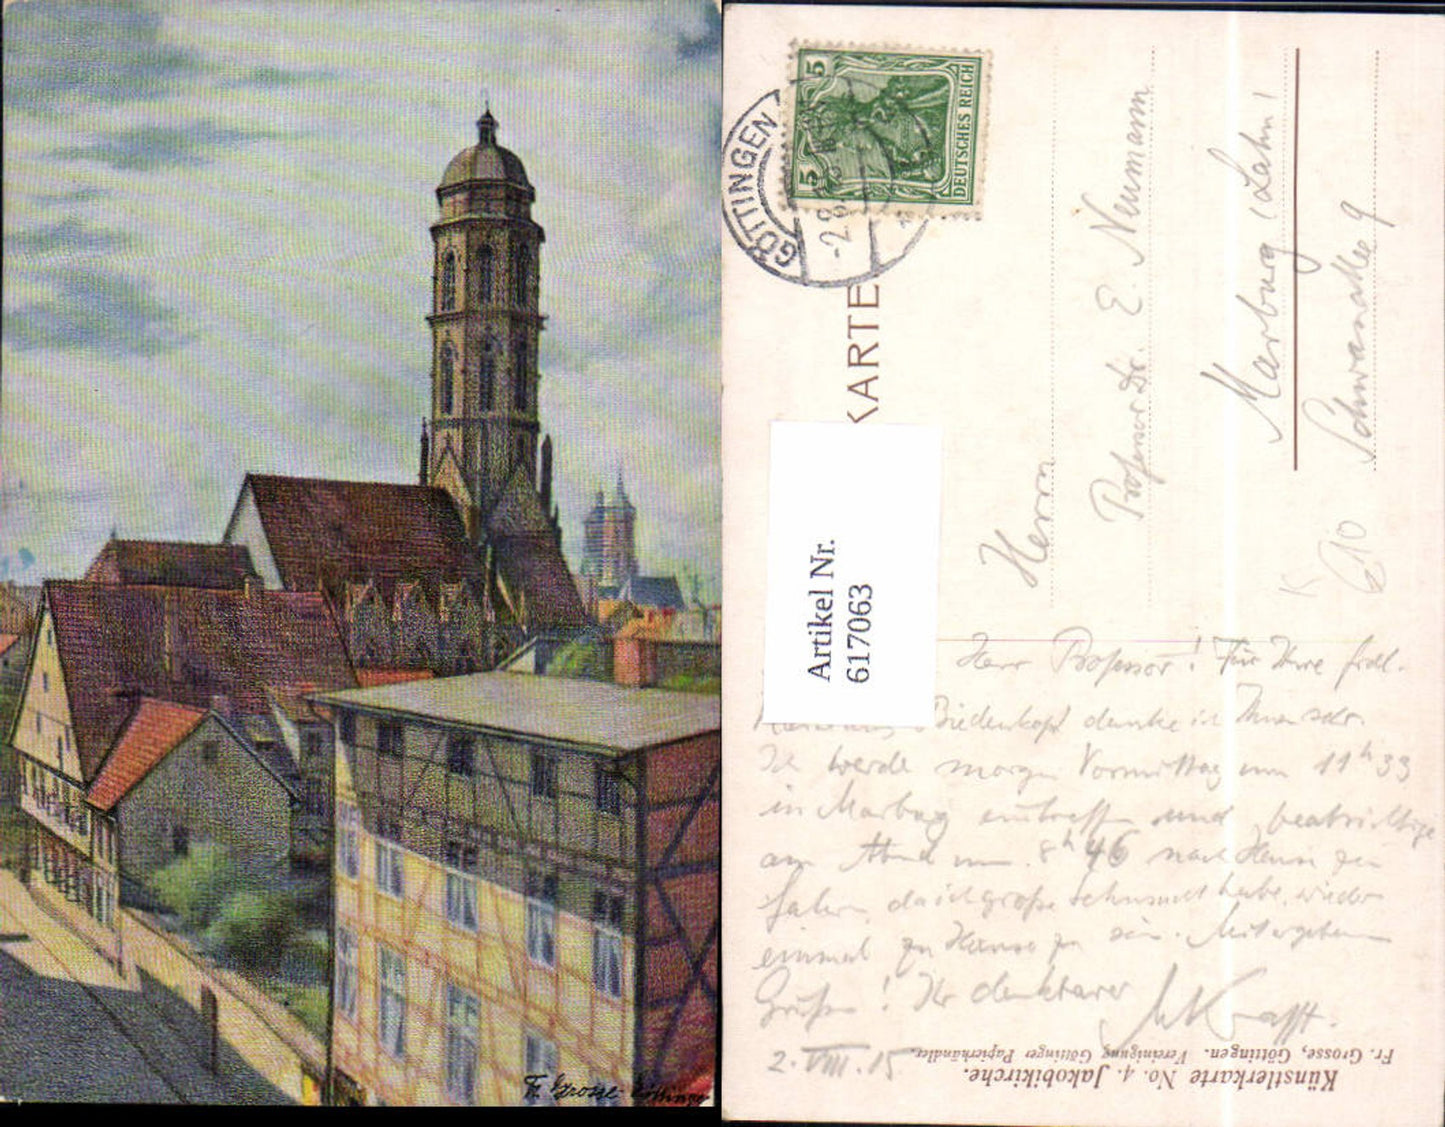 Fr. Grosse Göttingen
GÖTTINGEN
5 5
DEUTSCHES REICH
KARTE
Artikel Nr.
617063
Herrn
Professor Dr. E. Neumann
Marburg (Lahn)
Schwanallee 9
Herr Professor! Für Ihre frdl.
Biedenkopf danke ich Ihnen sehr.
Ich werde morgen Vormittag um 11h33
in Marburg eintreffen und beabsichtige
am Abend um 8h46 nach Hause zu
fahren, da ich große Sehnsucht habe, wieder
einmal zu Hause zu sein. Mit ergebenen
Grüßen! Ihr dankbarer
Krafft.
2.VIII.15
Künstlerkarte No. 4. Jakobikirche.
Fr. Grosse, Göttingen. Vereinigung Göttinger Papierhändler.